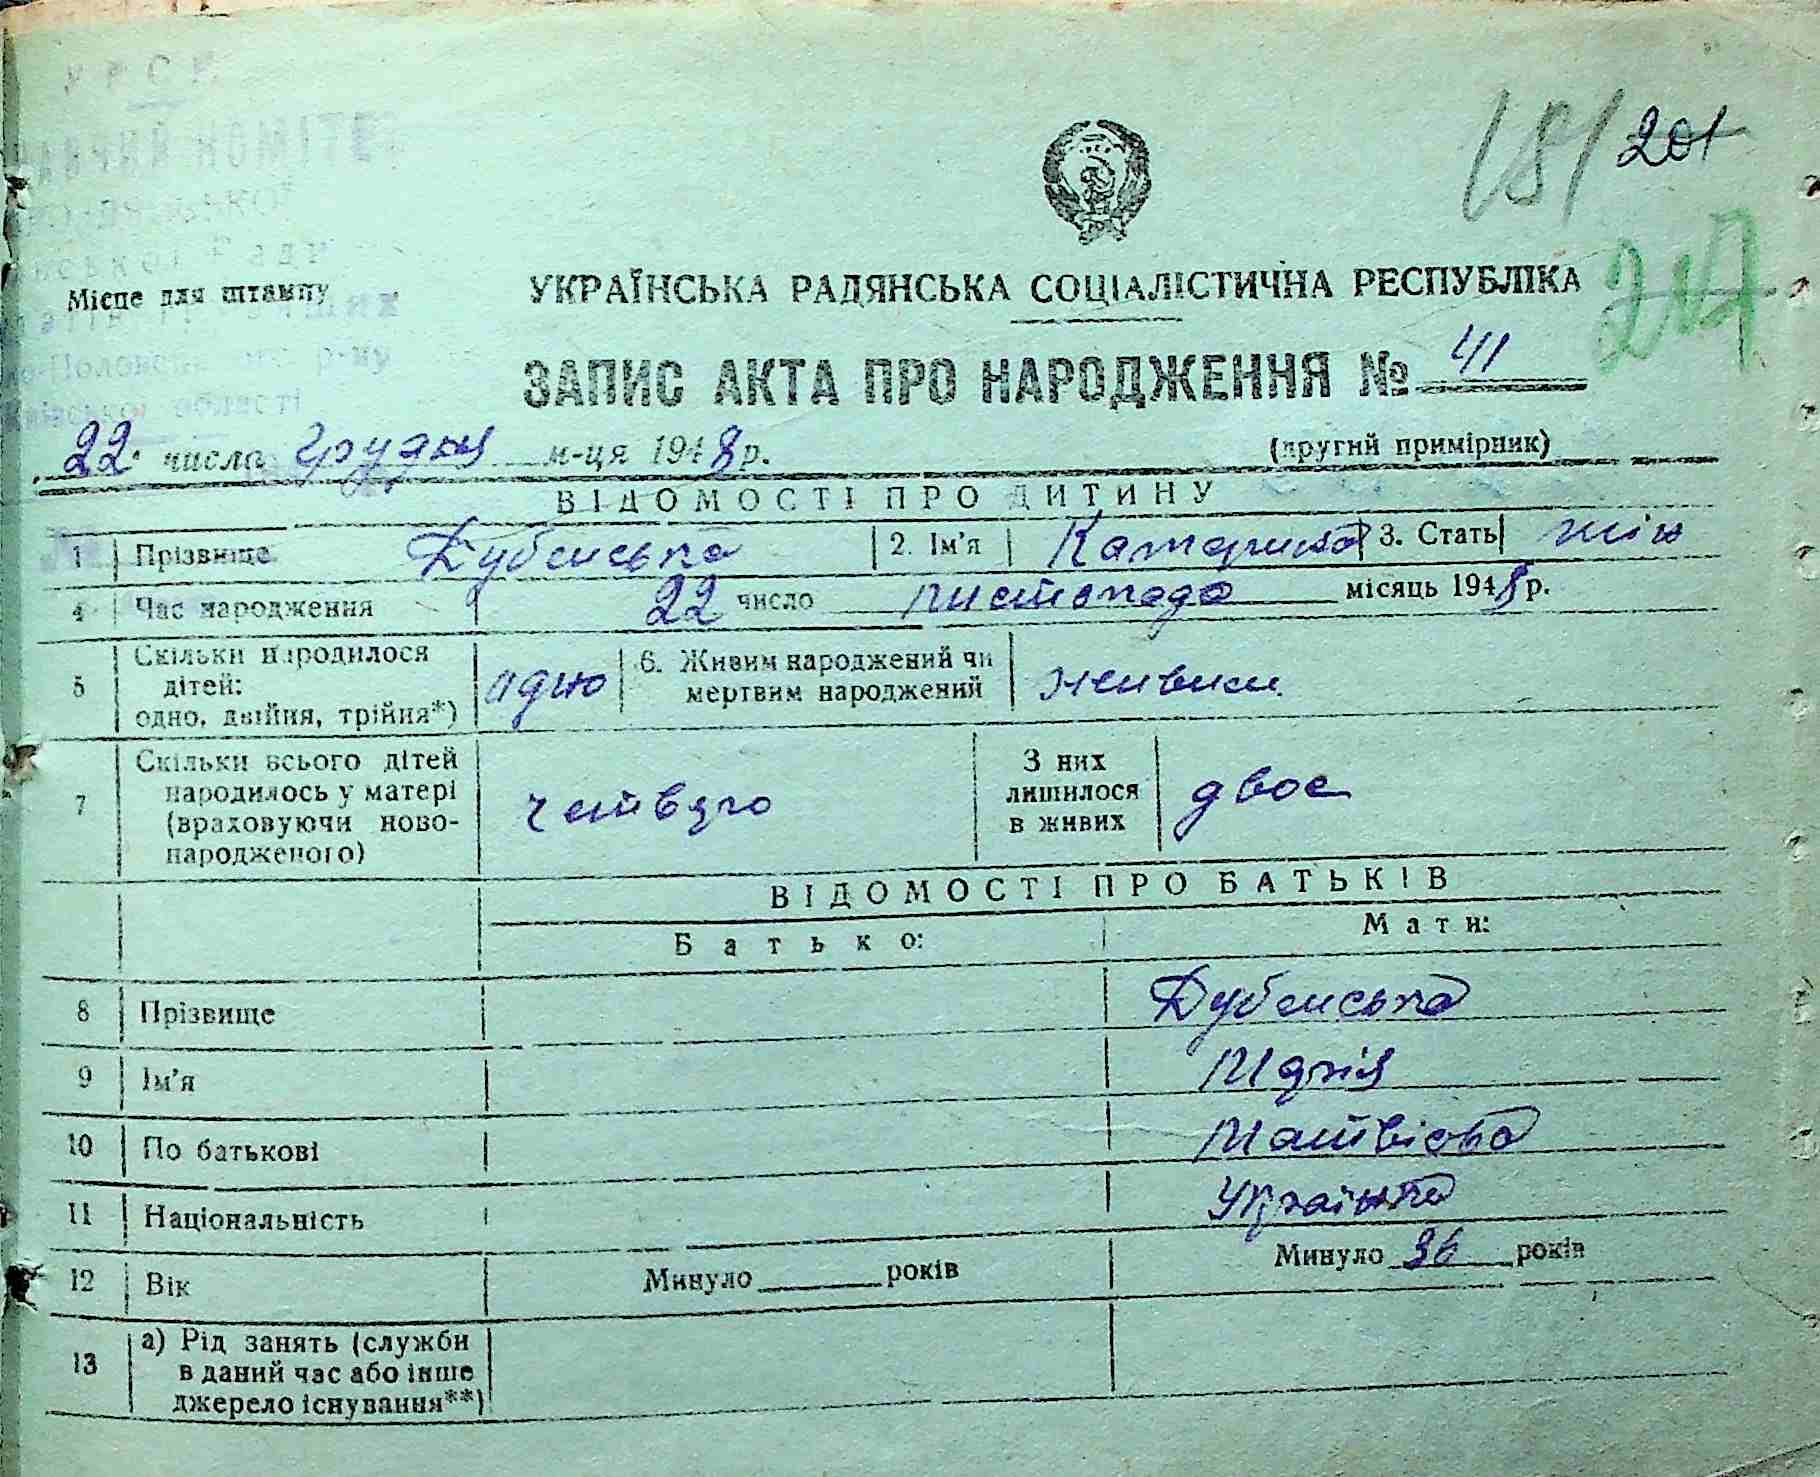 У Р С Р
КОМІТЕТ
181 201
Місце для штампу
УКРАЇНСЬКА РАДЯНСЬКА СОЦІАЛІСТИЧНА РЕСПУБЛІКА
217
р-ну
області
ЗАПИС АКТА ПРО НАРОДЖЕННЯ № 411
22 числа грудня м-ця 1948 р.
(другий примірник)
ВІДОМОСТІ ПРО ДИТИНУ
1 Прізвище Дубенська 2. Ім'я Катерина 3. Стать жін
4 Час народження 22 число листопада місяць 1948 р.
5 Скільки народилося дітей: одно, двійня, трійня*) одно 6. Живим народжений чи мертвим народжений живим
7 Скільки всього дітей народилось у матері (враховуючи новонародженого) четверо З них лишилося в живих двоє
ВІДОМОСТІ ПРО БАТЬКІВ
Батько: Мати:
8 Прізвище Дубенська
9 Ім'я Марія
10 По батькові Матвієва
11 Національність Українка
12 Вік Минуло років Минуло 36 років
13 а) Рід занять (служби в даний час або інше джерело існування**)